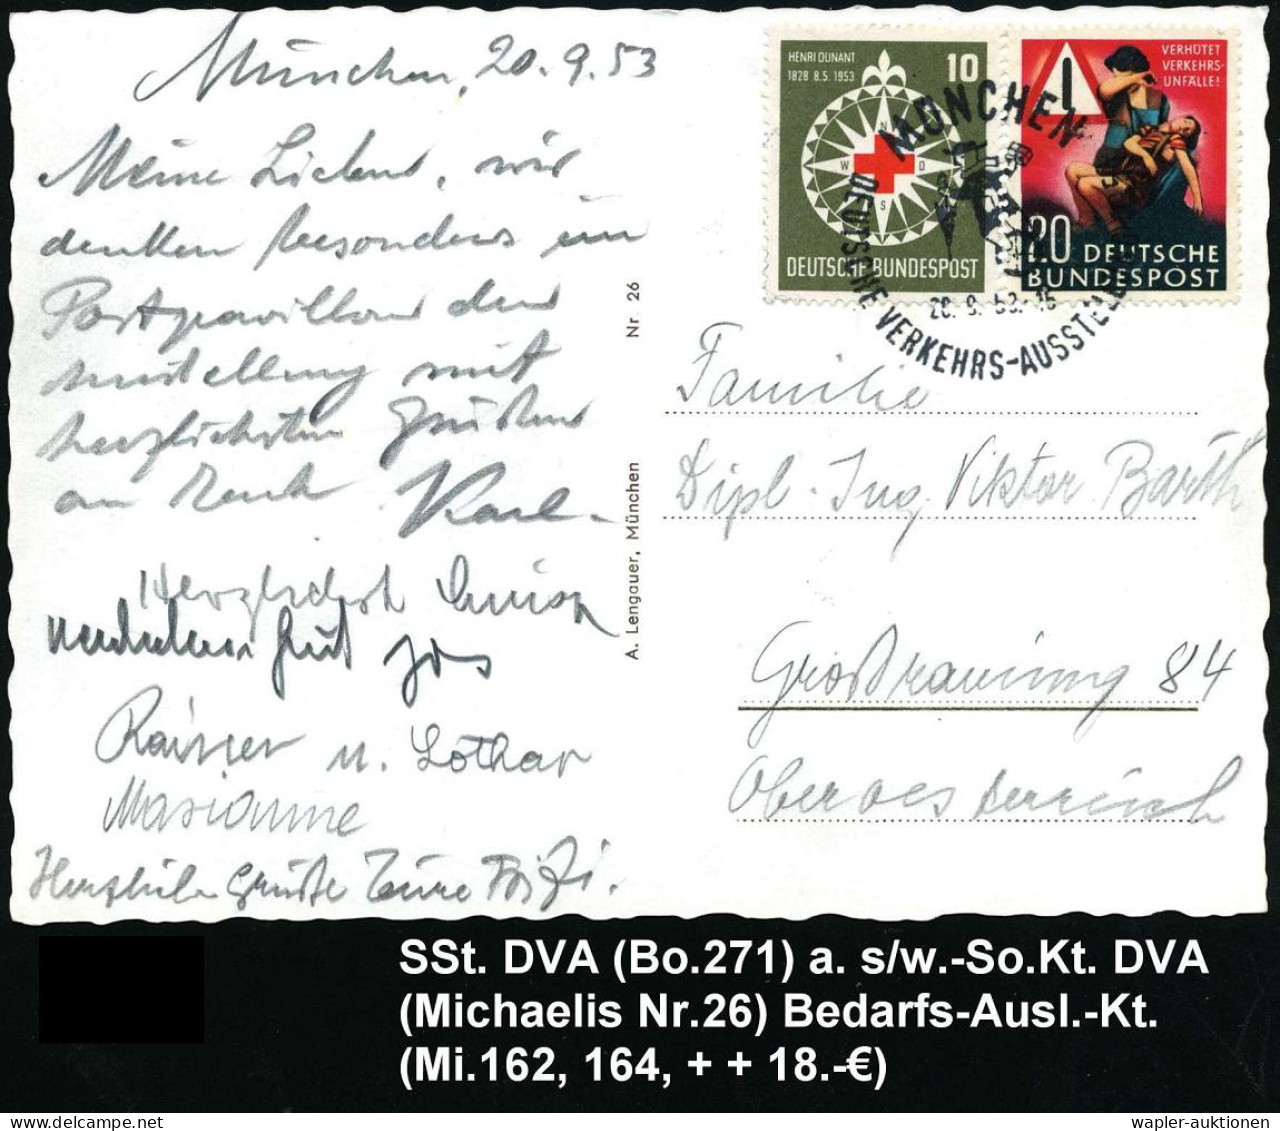 München, 20.9.53
Meine Lieben, wir
denken besonders im
Postpavillon der
Ausstellung mit
herzlichsten Grüßen
an Euch Karl
Herzlichst Luise
Rainer u. Lothar
Marianne
Herzliche Grüße Eure
A. Lengauer, München Nr. 26
HENRI DUNANT
1828 8.5.1953
10
N
W O
S
DEUTSCHE BUNDESPOST
VERHÜTET
VERKEHRS-
UNFÄLLE!
20 DEUTSCHE
BUNDESPOST
MÜNCHEN
DEUTSCHE VERKEHRS-AUSSTELLUNG
20.9.53.
Familie
Dipl. Ing. Viktor Barth
Großraming 84
Oberoesterreich
SSt. DVA (Bo.271) a. s/w.-So.Kt. DVA
(Michaelis Nr.26) Bedarfs-Ausl.-Kt.
(Mi.162, 164, + + 18.-€)
wapler-auktionen